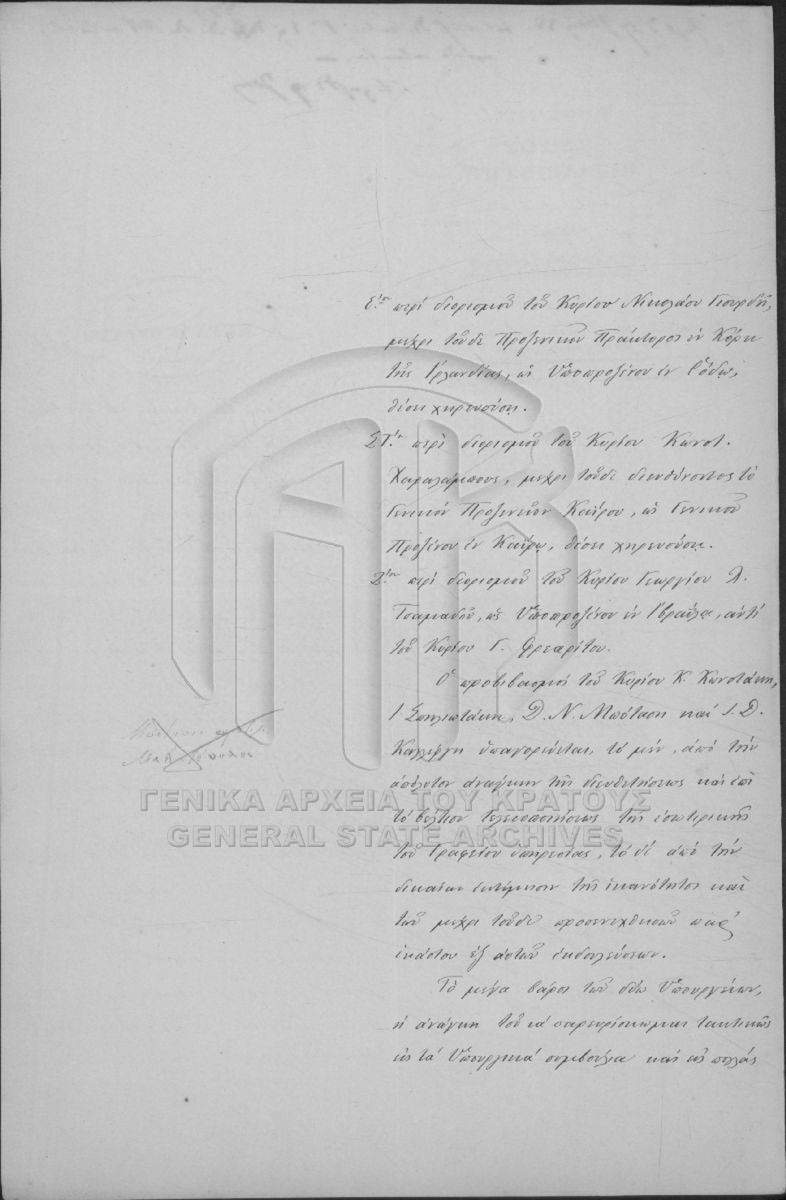 Ε'.ον περὶ διορισμοῦ τοῦ Κυρίου Νικολάου Γιουρδῆ,
μέχρι τοῦδε Προξενικοῦ Πράκτορος ἐν Κόρκ
τῆς Ἰρλανδίας, ὡς Ὑποπροξένου ἐν Ῥόδῳ,
θέσει χηρευούσῃ.
ΣΤ'.ον περὶ διορισμοῦ τοῦ Κυρίου Κωνστ.
Χαραλάμπους, μέχρι τοῦδε διευθύνοντος τὸ
Γενικὸν Προξενεῖον Καΐρου, ὡς Γενικοῦ
Προξένου ἐν Καΐρῳ, θέσει χηρευούσῃ.
Ζ'.ον περὶ διορισμοῦ τοῦ Κυρίου Γεωργίου Λ.
Τσαμαδοῦ, ὡς Ὑποπροξένου ἐν Ἰβραΐλᾳ, ἀντὶ
τοῦ Κυρίου Γ. Φρεαρίτου.
Ὁ προβιβασμὸς τοῦ Κυρίου Κ. Κωνστάκη,
Ι Σπηλιωτάκη, Δ. Ν. Μπότασῃ καὶ Ι. Δ.
Καλλέργη ὑπαγορεύεται, τὸ μὲν, ἀπὸ τὴν
ἀπόλυτον ἀνάγκην τῆς διευθετήσεως καὶ ἐπὶ
τὸ βέλτιον τελειοποιήσεως τῆς ἐσωτερικῆς
τοῦ Γραφείου ὑπηρεσίας, τὸ δὲ ἀπὸ τὴν
δικαίαν ἐκτίμησιν τῆς ἱκανότητος καὶ
τῶν μέχρι τοῦδε προσενεχθεισῶν παρ'
ἑκάστου ἐξ αὐτῶν ἐκδουλεύσεων.
Τὸ μέγα βάρος τῶν δύω Ὑπουργείων,
ἡ ἀνάγκη τοῦ νὰ παρευρίσκωμαι τακτικῶς
εἰς τὰ Ὑπουργικὰ συμβούλια καὶ εἰς πολλὰς
ΓΕΝΙΚΑ ΑΡΧΕΙΑ ΤΟΥ ΚΡΑΤΟΥΣ
GENERAL STATE ARCHIVES